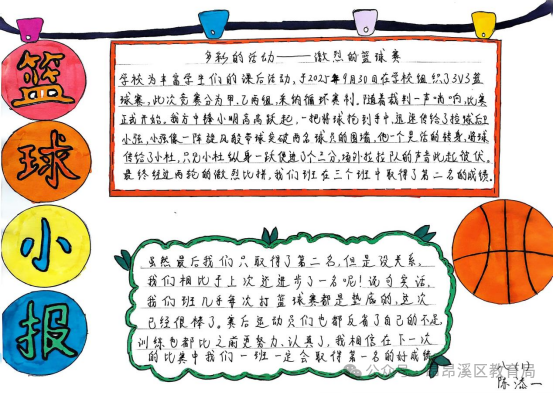 篮球小报
多彩的活动——激烈的篮球赛
学校为丰富学生们的课后活动,于2025年9月30日在学校组织了3V3篮
球赛,此次竞赛分为甲、乙两组,采纳循环赛制。随着裁判一声"哨"响,比赛
正式开始。我方中锋小明高高跃起,一把将球抢到手中,迅速传给了控球后卫
小张,小张像一阵旋风般带球突破两名球员的围堵,他一个灵活的转身,将球
传给了小杜,只见小杜纵身一跃便进了个三分,场外拉拉队的声音此起彼伏。
最终经过两轮的激烈比拼,我们班在三个班中取得了第二名的成绩。
虽然最后我们只取得了第二名,但是没关系,
我们相比于上次还进步了一名呢!说句实话,
我们班几乎每次打篮球赛都是垫底的,这次
已经很棒了。赛后运动员们也都反省了自己的不足
训练也都比之前更努力、认真了,我相信在下一次
的比赛中我们一班一定会取得第一名的好成绩
公众号·昂昂溪区教育局
陈添一